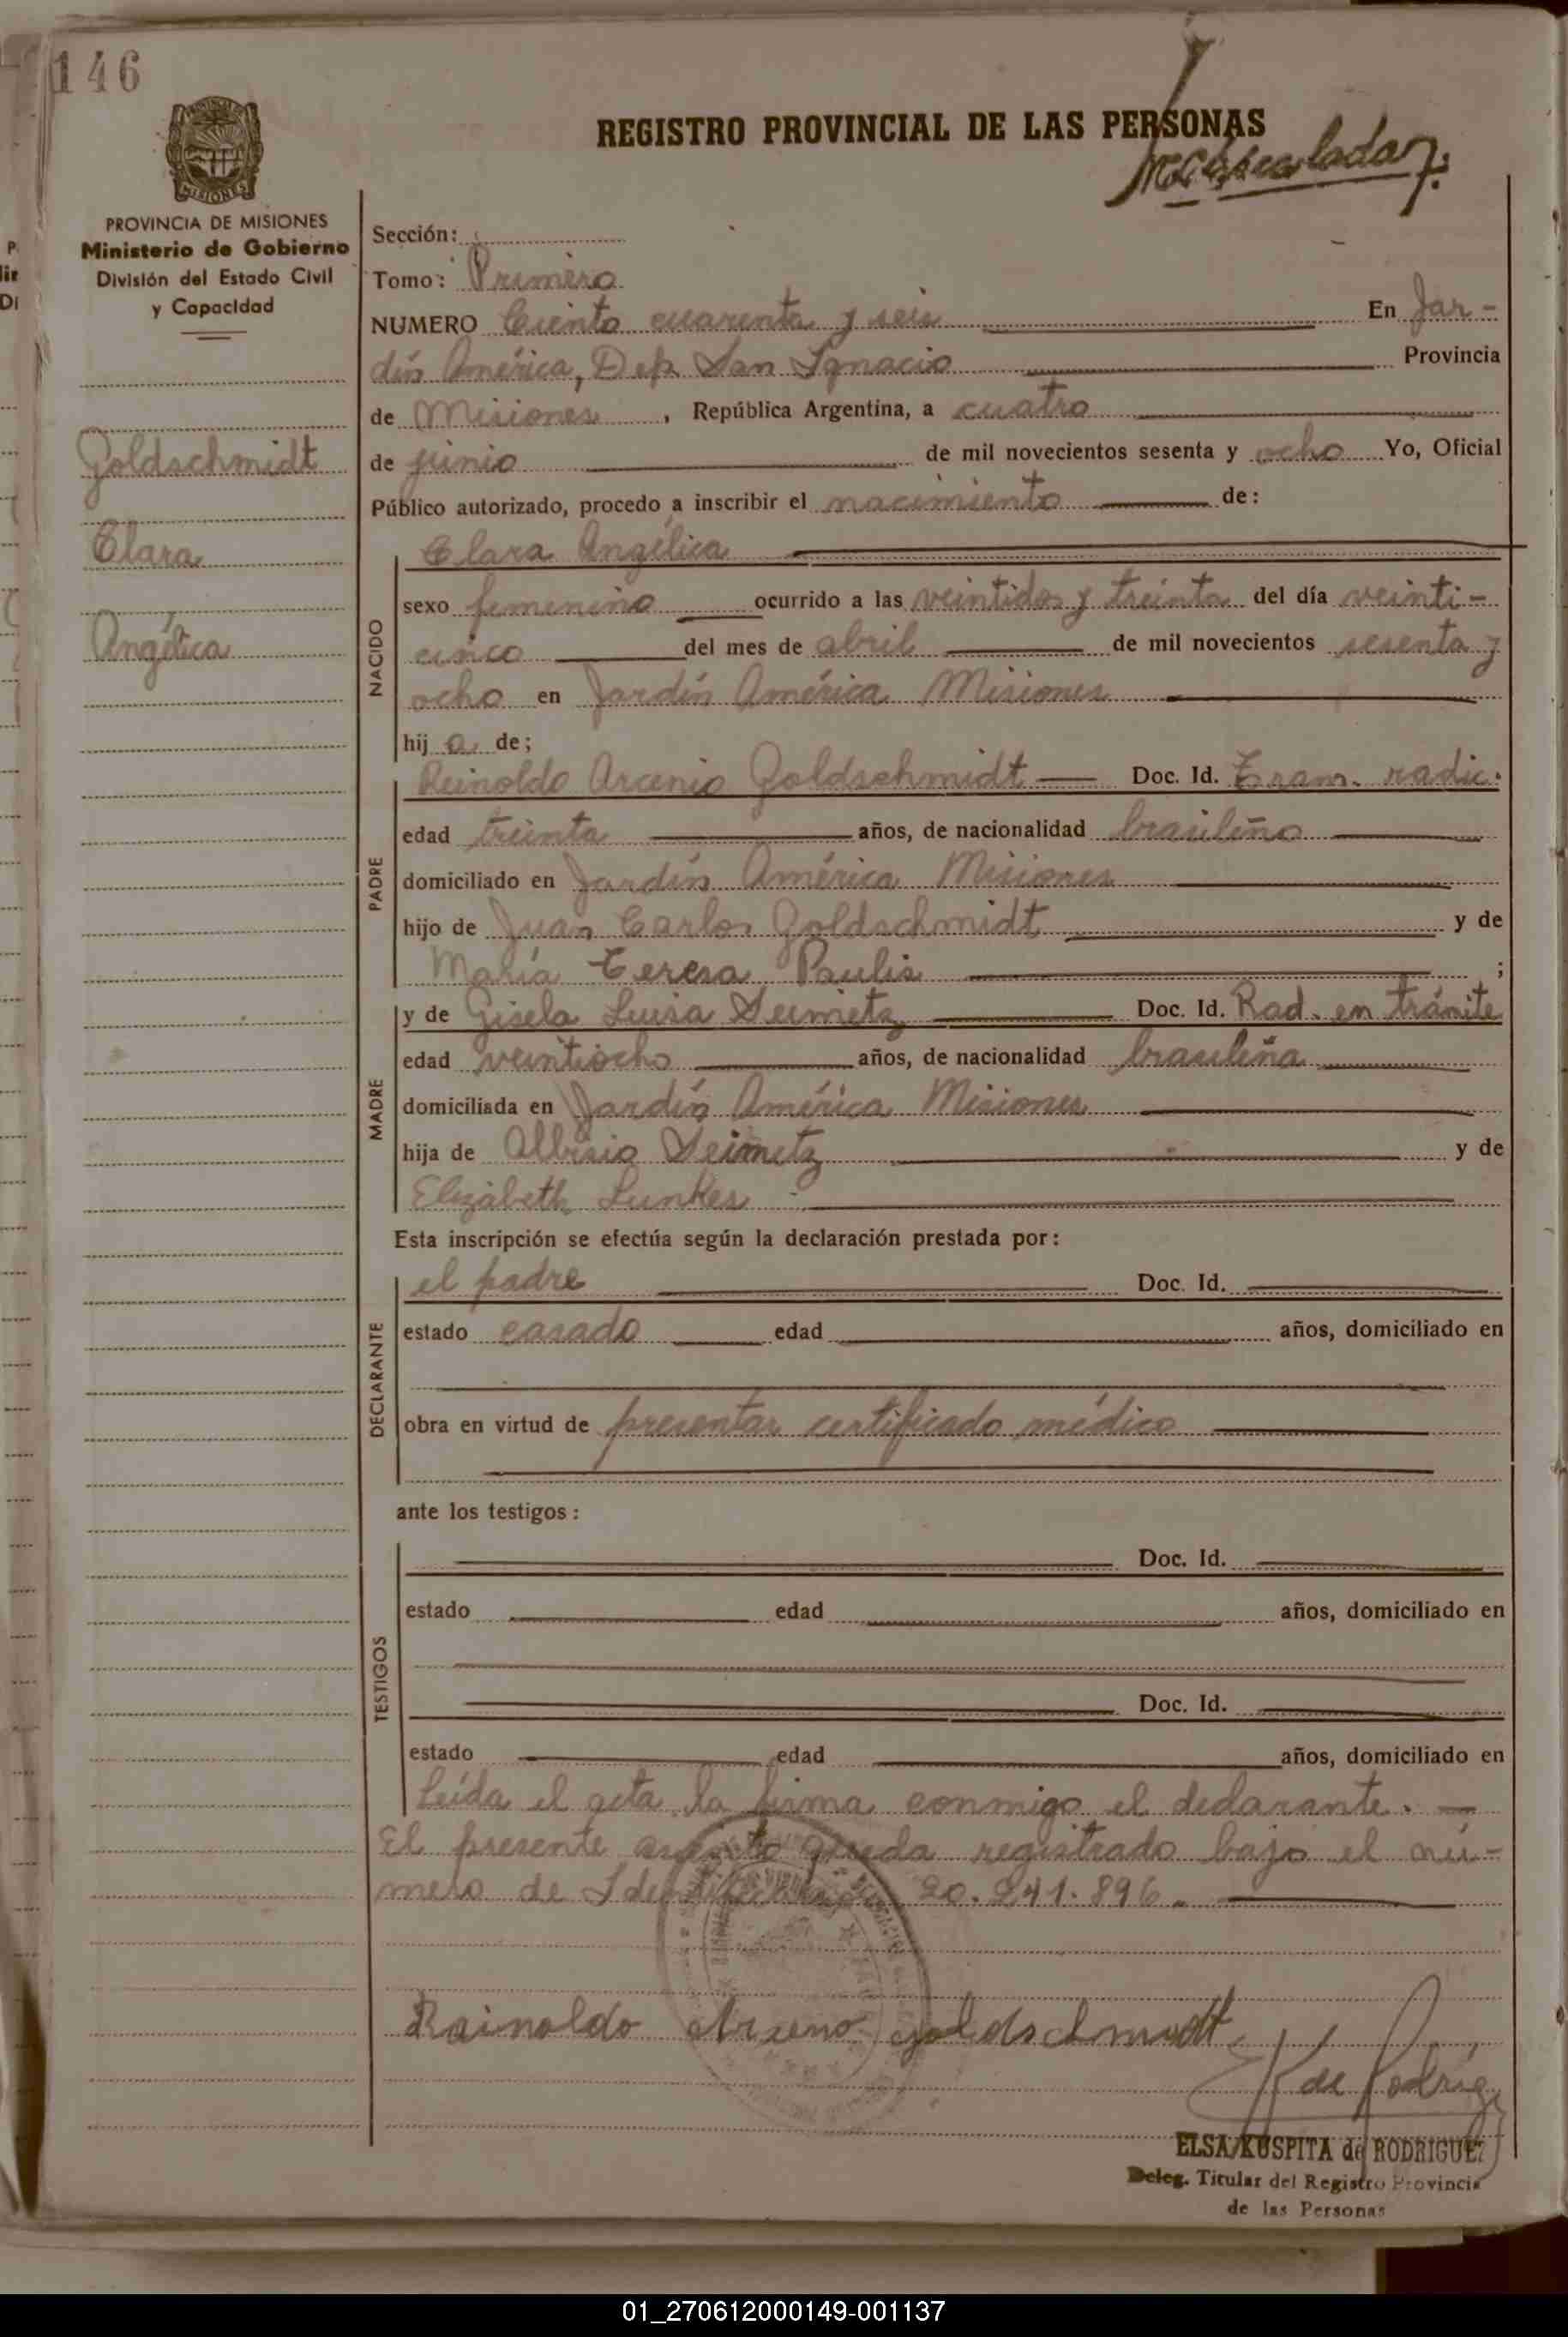 146
REGISTRO PROVINCIAL DE LAS PERSONAS
MISIONES
PROVINCIA DE MISIONES
Ministerio de Gobierno
División del Estado Civil
y Capacidad
Goldschmidt
Clara
Angélica
Sección:
Tomo: Primero
NUMERO Ciento cuarenta y seis En Jar-
dín América, Dep. San Ignacio Provincia
de Misiones, República Argentina, a cuatro
de junio de mil novecientos sesenta y ocho Yo, Oficial
Público autorizado, procedo a inscribir el nacimiento de:
NACIDO
Clara Angélica
sexo femenino ocurrido a las veintidos y treinta del día veinti-
cinco del mes de abril de mil novecientos sesenta y
ocho en Jardín América Misiones
hij a de;
PADRE
Reinoldo Arcenio Goldschmidt Doc. Id. Tram. radic.
edad treinta años, de nacionalidad brasileño
domiciliado en Jardín América Misiones
hijo de Juan Carlos Goldschmidt y de
María Teresa Paulis ;
MADRE
y de Gisela Luisa Seimetz Doc. Id. Rad. en trámite
edad veintiocho años, de nacionalidad brasileña
domiciliada en Jardín América Misiones
hija de Albisio Seimetz y de
Elizabeth Lunkes
Esta inscripción se efectúa según la declaración prestada por:
DECLARANTE
el padre Doc. Id.
estado casado edad años, domiciliado en
obra en virtud de presentar certificado médico
ante los testigos:
TESTIGOS
Doc. Id.
estado edad años, domiciliado en
Doc. Id.
estado edad años, domiciliado en
Leída el acta la firma conmigo el declarante.
El presente asiento queda registrado bajo el nú-
mero de Identificación 20.241.896.
Rainoldo Arzeno Goldschmidt
K de Rodríg
ELSA KUSPITA de RODRIGUEZ
Deleg. Titular del Registro Provincia
de las Personas
01_270612000149-001137